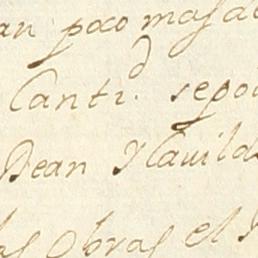 an poco mas de
Cantid. se po
Dean y Cavild
las Obras el